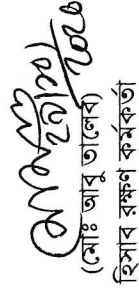 (মোঃ আবু তালেব)
হিসাব রক্ষণ কর্মকর্তা